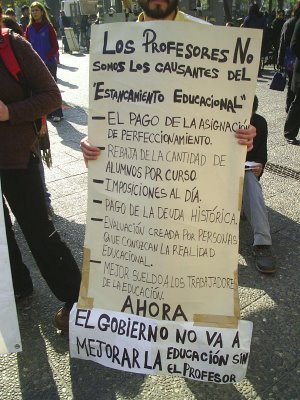 LOS PROFESORES NO
SOMOS LOS CAUSANTES DEL
"ESTANCAMIENTO EDUCACIONAL"
- EL PAGO DE LA ASIGNACIÓN
DE PERFECCIONAMIENTO.
- REBAJA DE LA CANTIDAD DE
ALUMNOS POR CURSO.
- IMPOSICIONES AL DÍA.
- PAGO DE LA DEUDA HISTÓRICA.
- EVALUACIÓN CREADA POR PERSONAS
QUE CONOZCAN LA REALIDAD
EDUCACIONAL.
- MEJOR SUELDO A LOS TRABAJADORES
DE LA EDUCACIÓN.
AHORA
EL GOBIERNO NO VA A
MEJORAR LA EDUCACIÓN SIN
EL PROFESOR